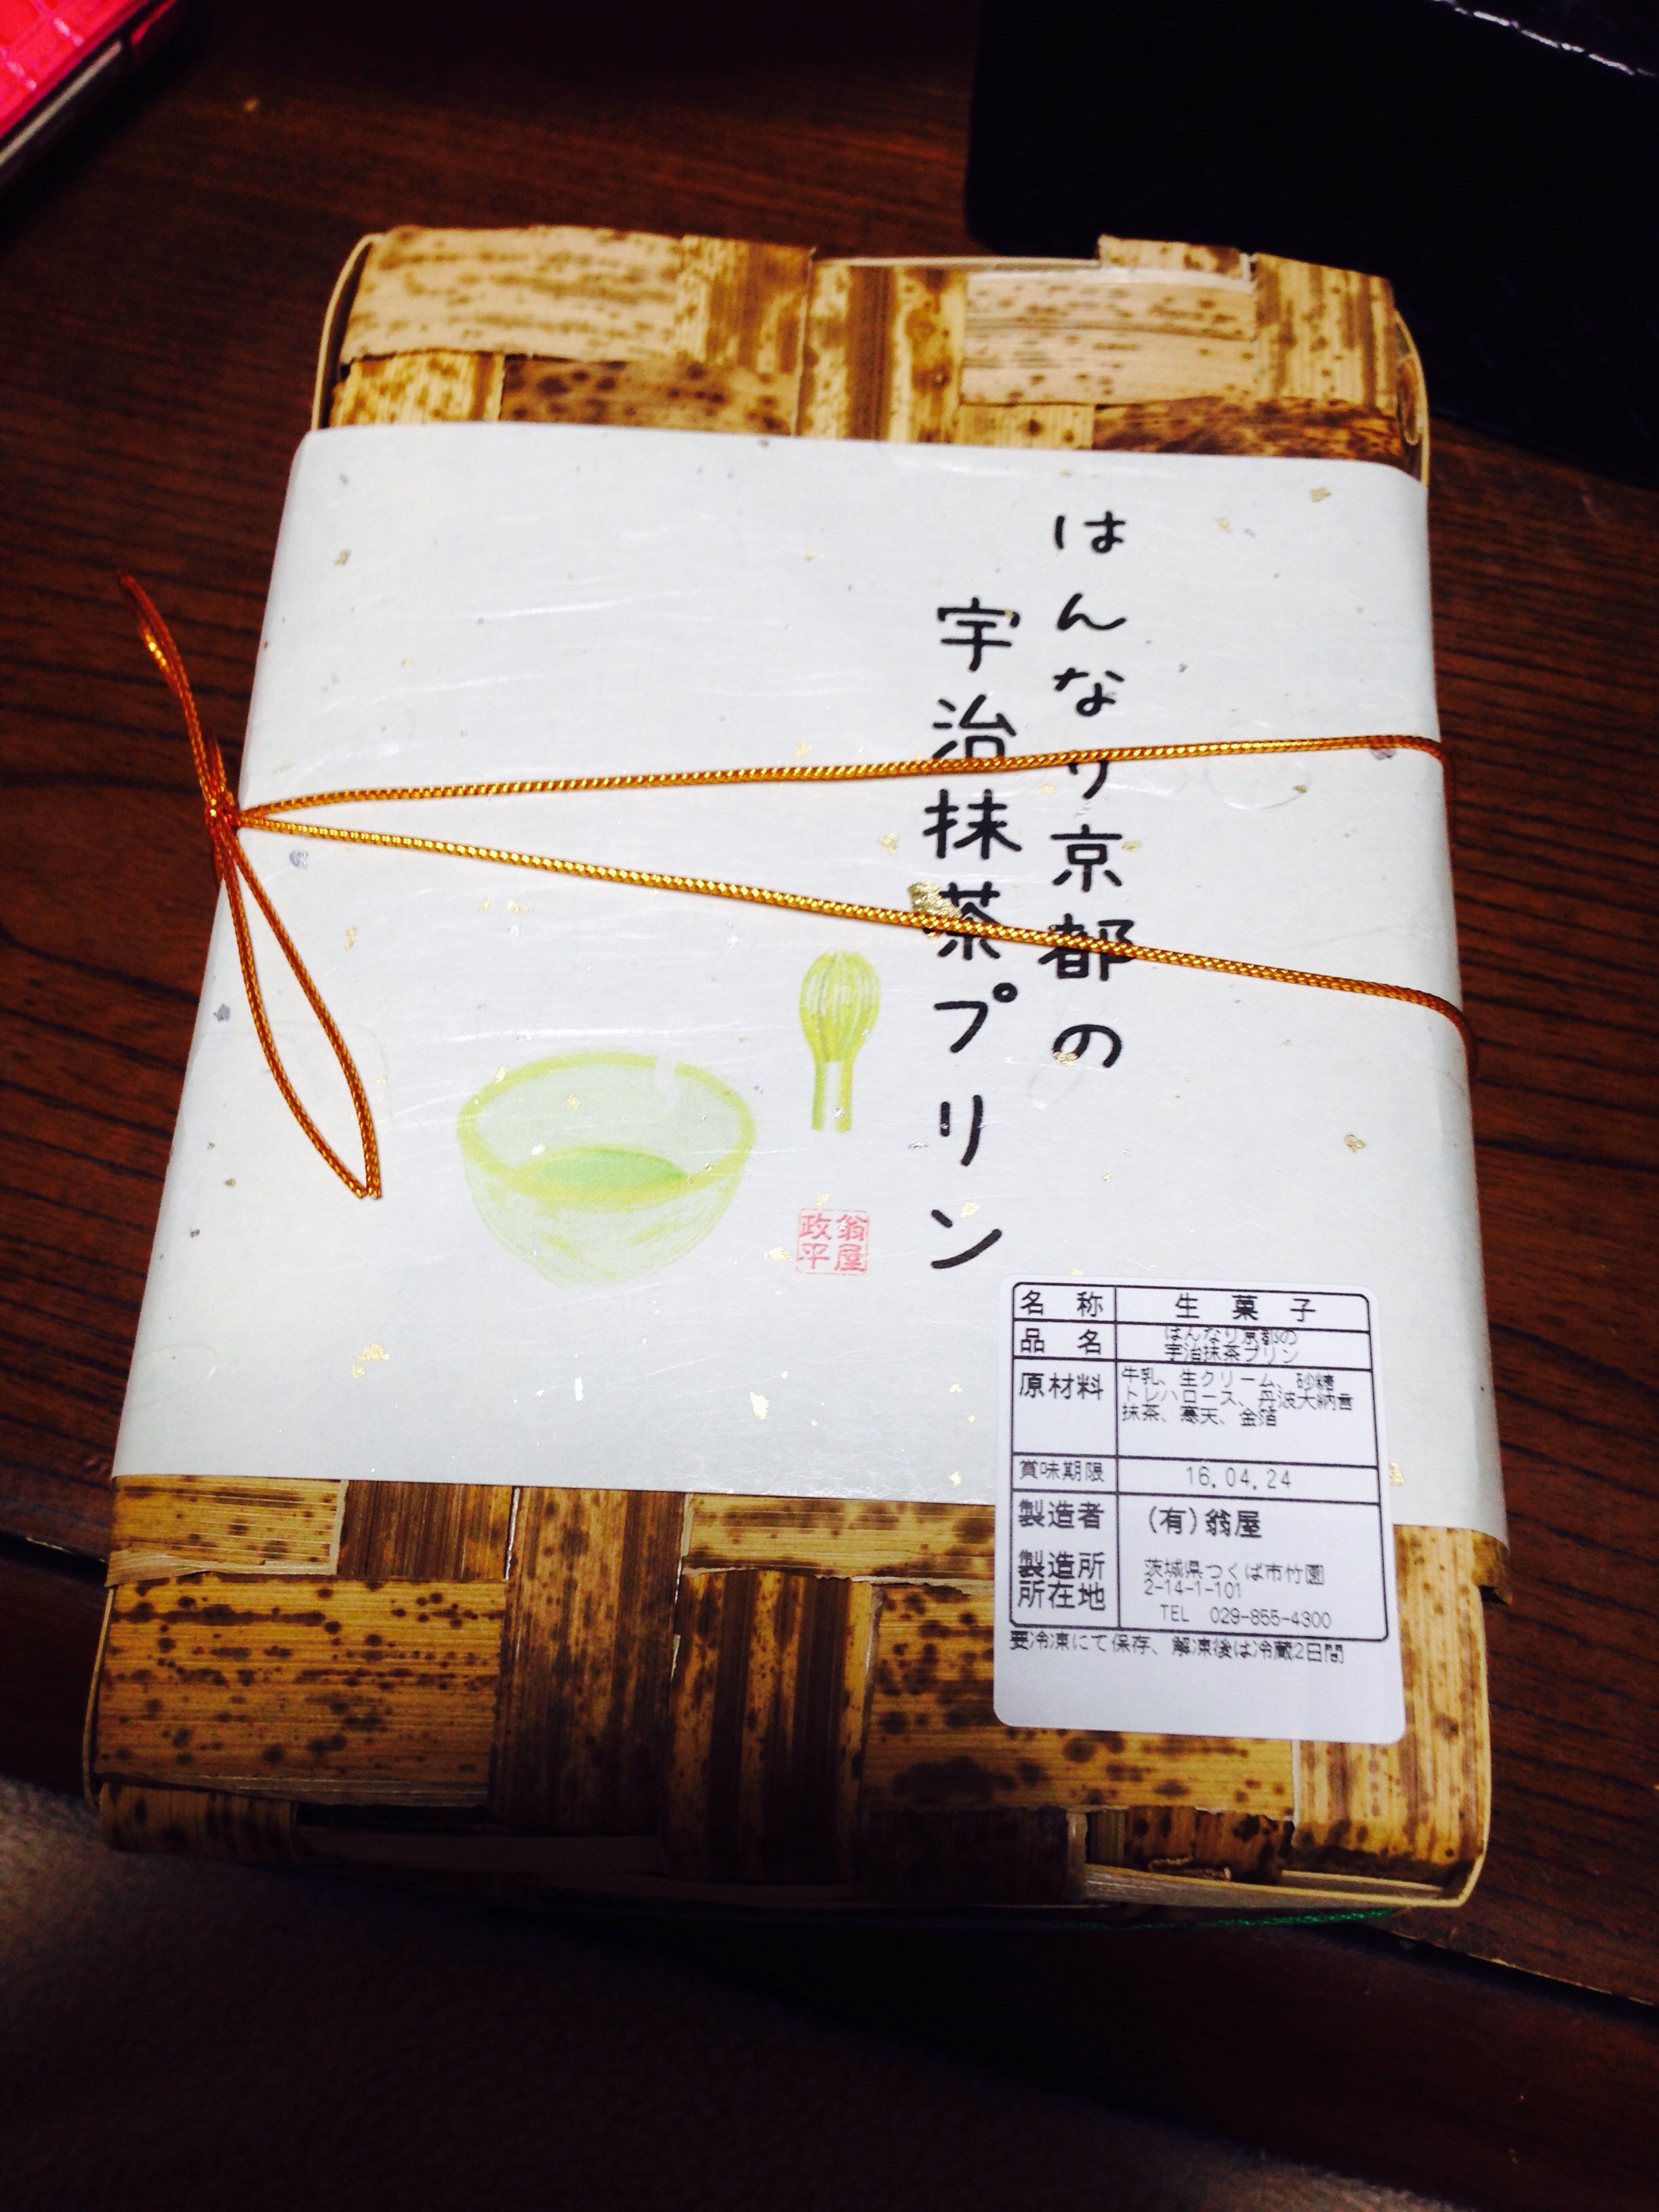 はんなり京都の
宇治抹茶プリン
翁屋
政平
名称 生菓子
品名 はんなり京都の
宇治抹茶プリン
原材料 牛乳、生クリーム、砂糖
トレハロース、丹波大納言
抹茶、寒天、金箔
賞味期限 16.04.24
製造者 (有)翁屋
製造所
所在地
茨城県つくば市竹園
2-14-1-101
TEL 029-855-4300
要冷凍にて保存、解凍後は冷蔵2日間